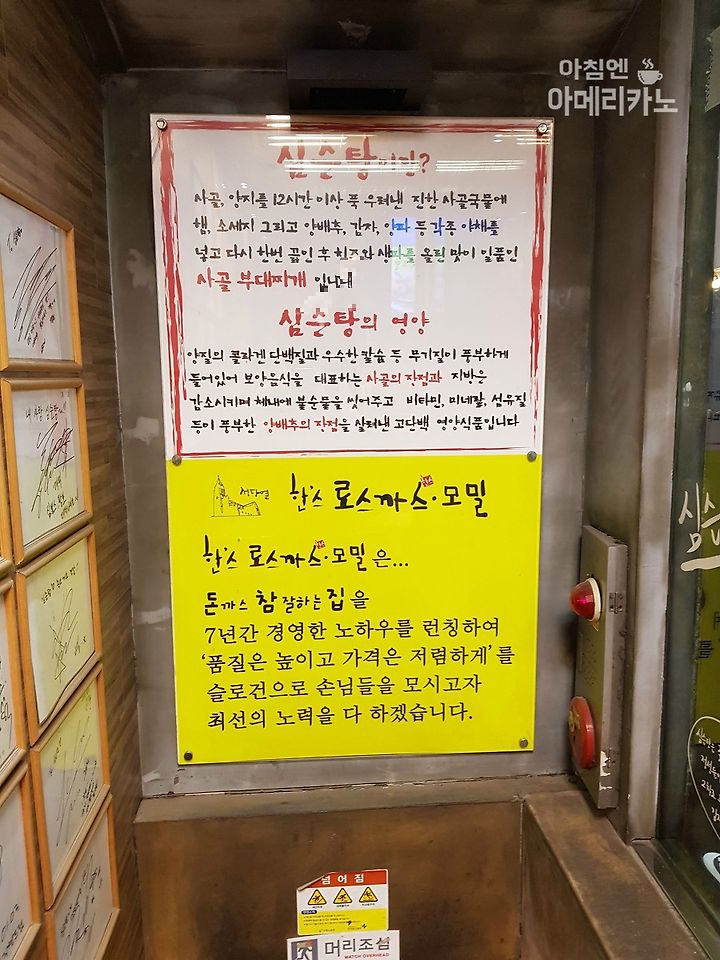 아침엔
아메리카노
심슨탕이란?
사골, 양지를 12시간 이상 푹 우려낸 진한 사골국물에
햄, 소세지 그리고 양배추, 감자, 양파 등 각종 야채를
넣고 다시 한번 끓인 후 치즈와 생파를 올린 맛이 일품인
사골 부대찌개 입니다
심슨탕의 영양
양질의 콜라겐 단백질과 우수한 칼슘 등 무기질이 풍부하게
들어있어 보양음식을 대표하는 사골의 장점과 지방은
감소시키며 체내에 불순물을 씻어주고 비타민, 미네랄, 섬유질
등이 풍부한 양배추의 장점을 살려낸 고단백 영양식품입니다
한's 로스까스·모밀
한's 로스까스·모밀은...
돈까스 참 잘하는 집을
7년간 경영한 노하우를 런칭하여
'품질은 높이고 가격은 저렴하게'를
슬로건으로 손님들을 모시고자
최선의 노력을 다 하겠습니다.
넘어짐
머리조심
WATCH OVERHEAD